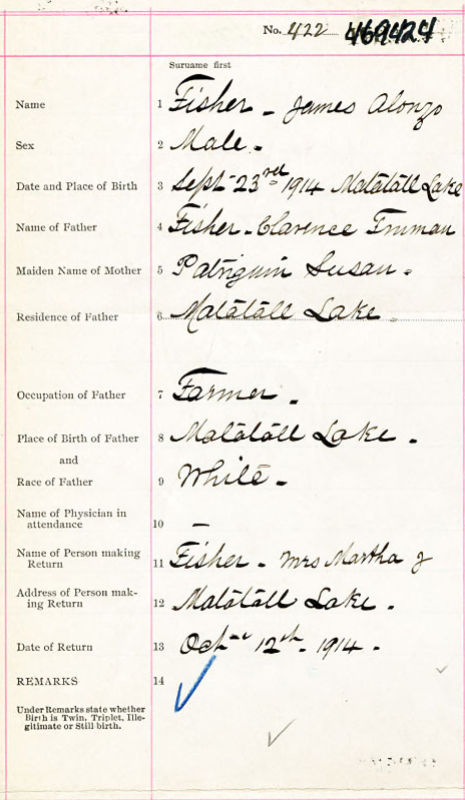 No. 422 469424
Surname first
Name 1 Fisher - James Alonzo
Sex 2 Male -
Date and Place of Birth 3 Sept 23rd 1914 Matatall Lake
Name of Father 4 Fisher - Clarence Truman
Maiden Name of Mother 5 Patriquin Susan -
Residence of Father 6 Matatall Lake
Occupation of Father 7 Farmer -
Place of Birth of Father 8 Matatall Lake -
and
Race of Father 9 White -
Name of Physician in
attendance 10 —
Name of Person making
Return 11 Fisher - Mrs Martha J
Address of Person mak-
ing Return 12 Matatall Lake -
Date of Return 13 Oct 12th - 1914 -
REMARKS 14
Under Remarks state whether
Birth is Twin, Triplet, Ille-
gitimate or Still birth.